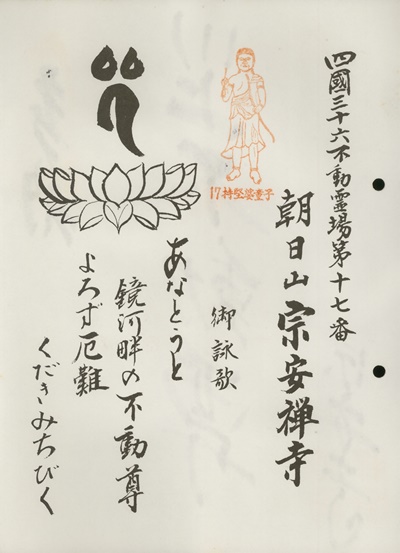 四國三十六不動霊場第十七番
朝日山 宗安禅寺
御詠歌
あなとうと
鏡河畔の不動尊
よろず厄難
くだきみちびく
17.持堅婆童子